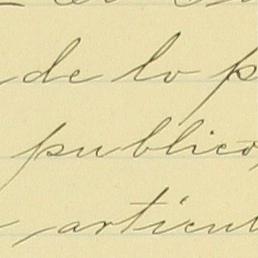 de lo p
publico,
articul